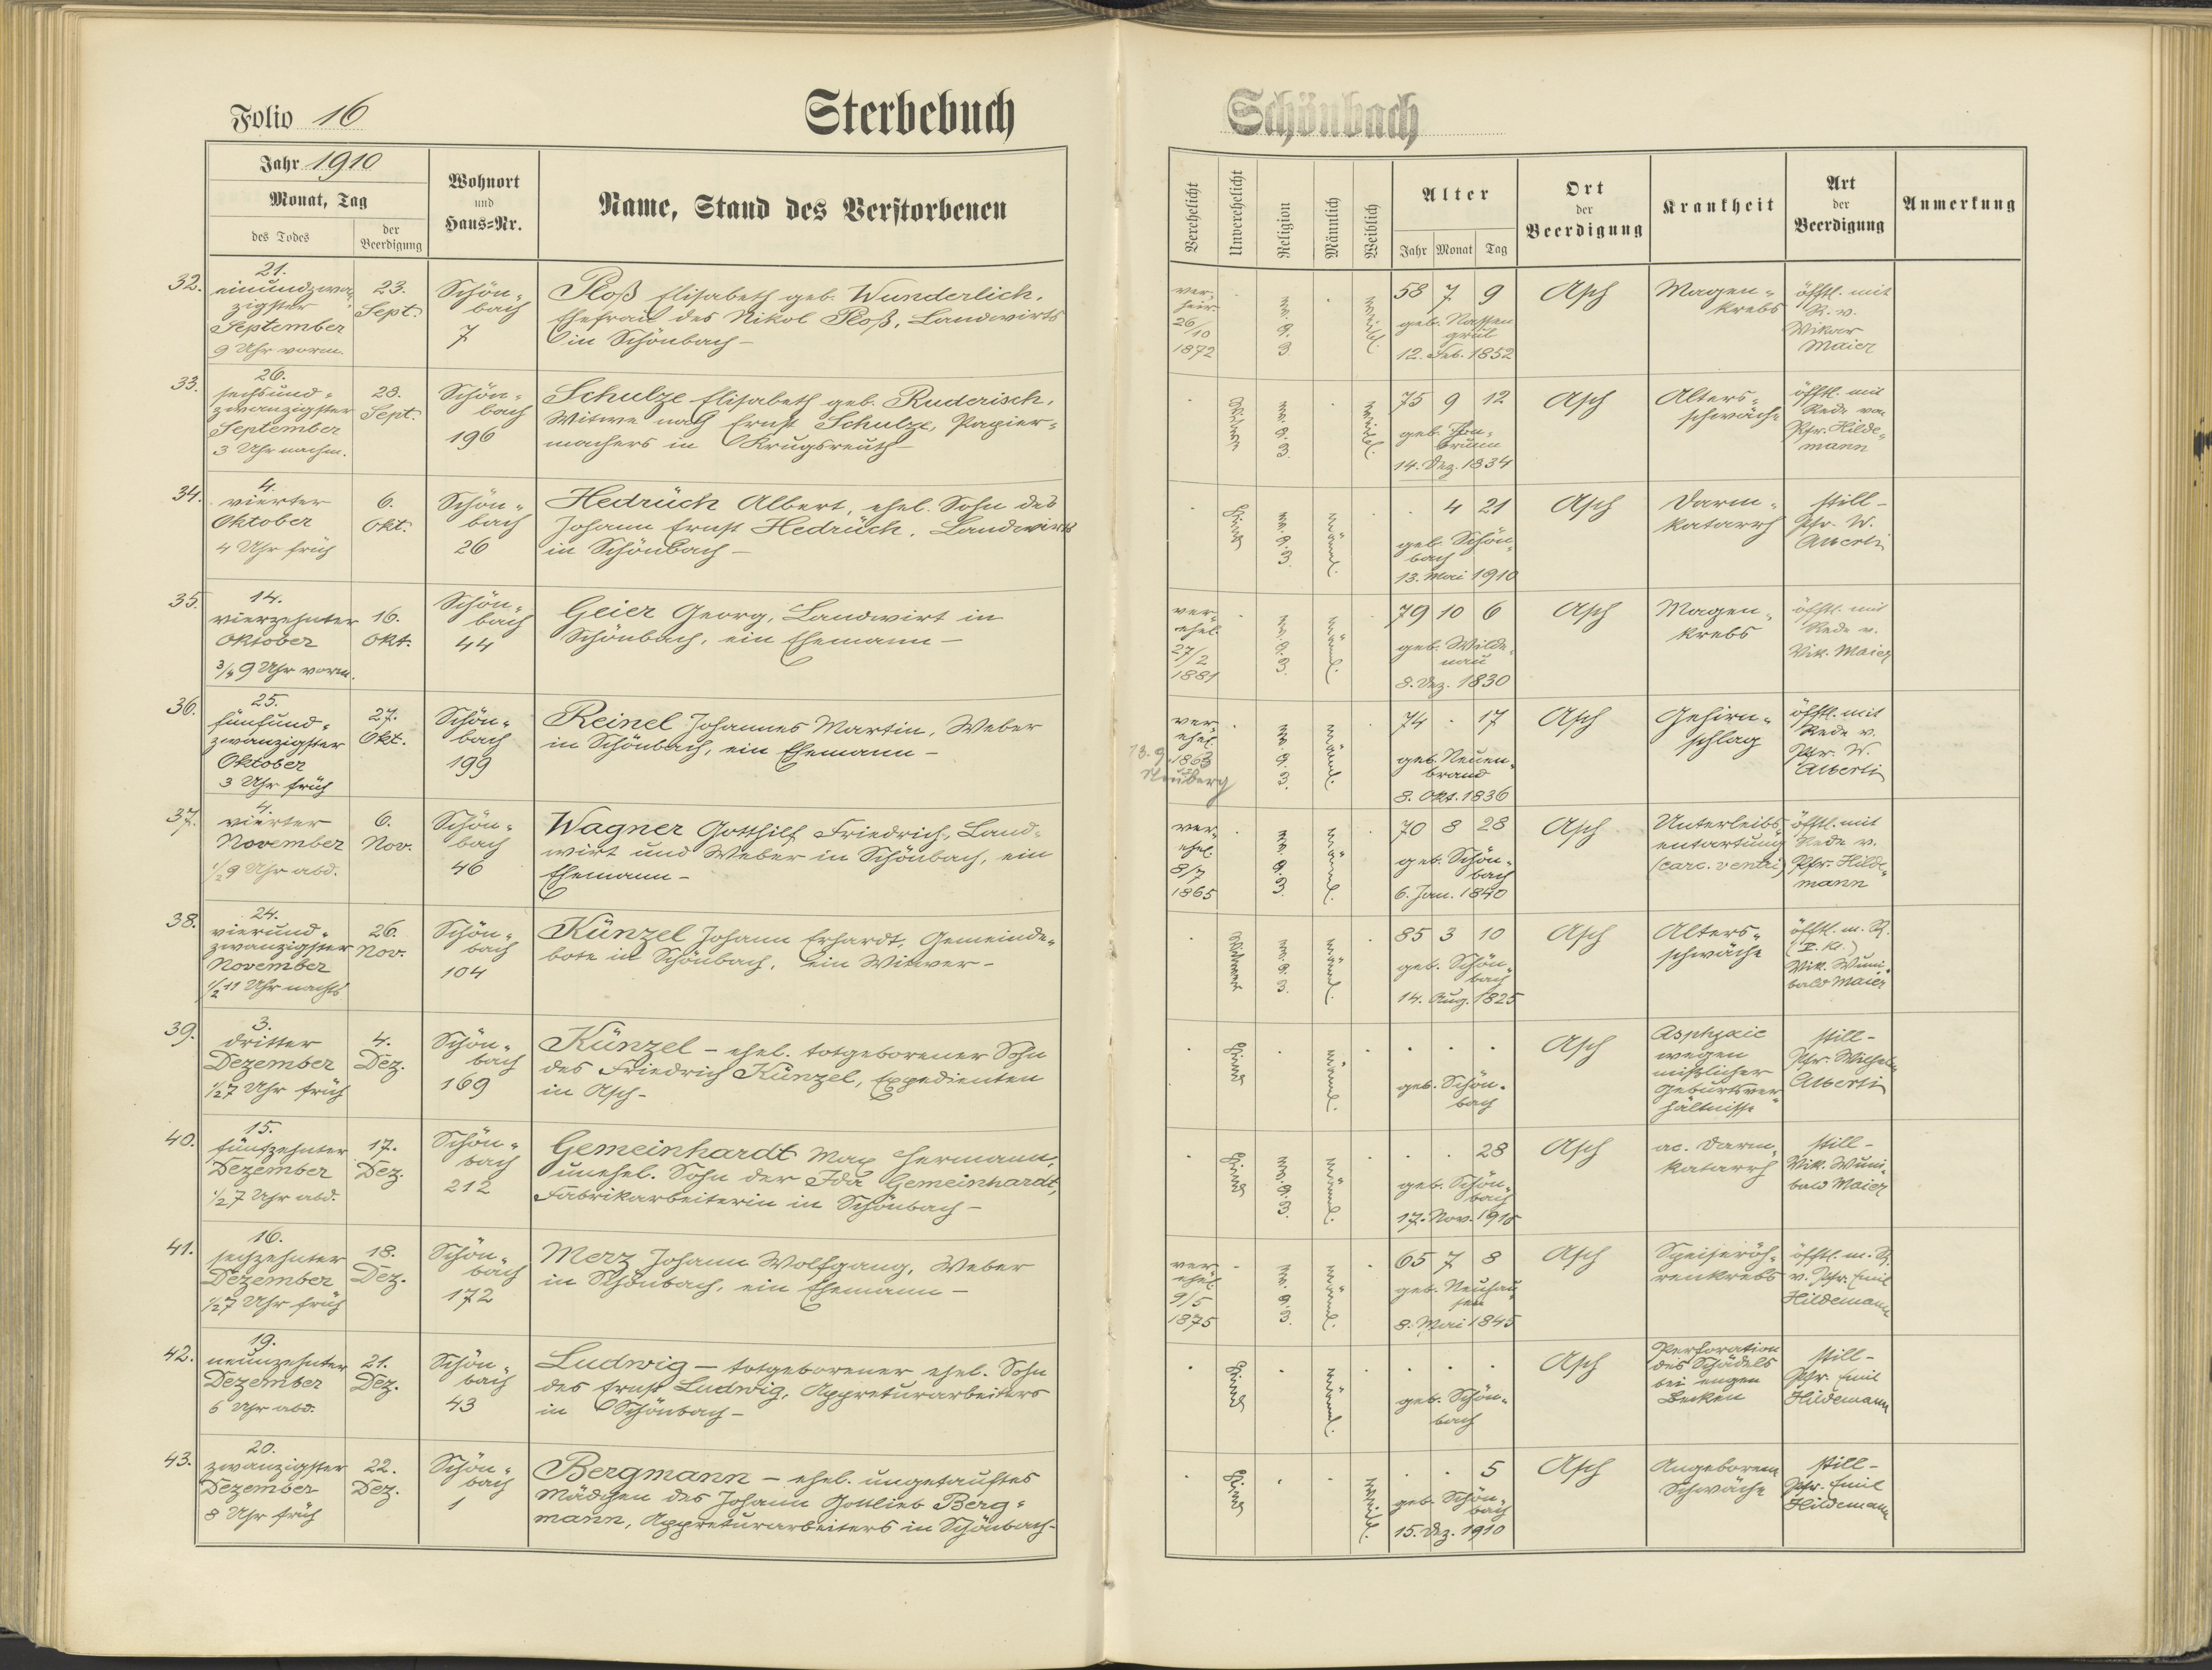 Folio 16
Sterbebuch
Schönbach
Jahr 1910
Monat, Tag
des Todes
der Beerdigung
Wohnort
und
Haus=Nr.
Name, Stand des Verstorbenen
Verehelicht
Unverehelicht
Religion
Männlich
Weiblich
Alter
Jahr Monat Tag
Ort
der
Beerdigung
Krankheit
Art
der
Beerdigung
Anmerkung
32.
21.
einundzwan-
zigster
September
9 Uhr vorm.
23.
Sept.
Schön-
bach
7
Ploß Elisabeth geb. Wunderlich,
Ehefrau des Nikol Ploß, Landwirts
in Schönbach –
ver-
heir.
26/10
1872
ev. A. B.
weibl.
58 7 9
geb. Nassen
grub
12. Feb. 1852
Asch
Magen-
krebs
öfftl. mit
R. v.
Vikar
Maier
33.
26.
sechsund-
zwanzigster
September
3 Uhr nachm.
28.
Sept.
Schön-
bach
196
Schulze Elisabeth geb. Ruderisch,
Witwe nach Ernst Schulze, Papier-
machers in Krugsreuth –
Witwe
ev. A. B.
weibl.
75 9 12
geb. Thon-
brunn
14. Dez. 1834
Asch
Alters-
schwäche
öfftl. mit
Rede von
Pfr. Hilde-
mann
34.
4.
vierter
Oktober
4 Uhr früh
6.
Okt.
Schön-
bach
26
Hedrüch Albert, ehel. Sohn des
Johann Ernst Hedrüch, Landwirts
in Schönbach –
Kind
ev. A. B.
männl.
4 21
geb. Schön-
bach
13. Mai 1910
Asch
Darm-
katarrh
still –
Pfr. W.
Alberti
35.
14.
vierzehnter
Oktober
3/4 9 Uhr vorm.
16.
Okt.
Schön-
bach
44
Geier Georg, Landwirt in
Schönbach, ein Ehemann –
ver-
ehel.
27/2
1881
ev. A. B.
männl.
79 10 6
geb. Wilde-
nau
8. Dez. 1830
Asch
Magen-
krebs
öfftl. mit
Rede v.
Vik. Maier
36.
25.
fünfund-
zwanzigster
Oktober
3 Uhr früh
27.
Okt.
Schön-
bach
199
Reinel Johannes Martin, Weber
in Schönbach, ein Ehemann –
ver-
ehel.
13. 9. 1863
Neuberg
ev. A. B.
männl.
74 . 17
geb. Neuen-
brand
8. Okt. 1836
Asch
Gehirn-
schlag
öfftl. mit
Rede v.
Pfr. W.
Alberti
37.
4.
vierter
November
1/2 9 Uhr abd.
6.
Nov.
Schön-
bach
46
Wagner Gotthilf Friedrich, Land-
wirt und Weber in Schönbach, ein
Ehemann –
ver-
ehel.
8/7
1865
ev. A. B.
männl.
70 8 28
geb. Schön-
bach
6. Jan. 1840
Asch
Unterleibs-
entartung
(carc. ventri)
öfftl. mit
Rede v.
Pfr. Hilde-
mann
38.
24.
vierund-
zwanzigster
November
1/2 11 Uhr nachts
26.
Nov.
Schön-
bach
104
Künzel Johann Erhardt, Gemeinde-
bote in Schönbach, ein Witwer –
Witwer
ev. A. B.
männl.
85 3 10
geb. Schön-
bach
14. Aug. 1825
Asch
Alters-
schwäche
öfftl. m. R.
Vik. Wuni-
bald Maier
39.
3.
dritter
Dezember
1/2 7 Uhr früh
4.
Dez.
Schön-
bach
169
Künzel – ehel. totgeborener Sohn
des Friedrich Künzel, Expedienten
in Asch –
Kind
männl.
geb. Schön-
bach
Asch
Asphyxie
wegen
misslicher
Geburtsver-
hältnisse
still –
Pfr. Wilhelm
Alberti
40.
15.
fünfzehnter
Dezember
1/2 7 Uhr abd.
17.
Dez.
Schön-
bach
212
Gemeinhardt Max Hermann,
unehel. Sohn der Ida Gemeinhardt,
Fabrikarbeiterin in Schönbach –
Kind
ev. A. B.
männl.
28
geb. Schön-
bach
17. Nov. 1910
Asch
ac. Darm-
katarrh
still –
Vik. Wuni-
bald Maier
41.
16.
sechzehnter
Dezember
1/2 7 Uhr früh
18.
Dez.
Schön-
bach
172
Merz Johann Wolfgang, Weber
in Schönbach, ein Ehemann –
ver-
ehel.
9/5
1875
ev. A. B.
männl.
65 7 8
geb. Neuhau-
sen
8. Mai 1845
Asch
Speiseröh-
renkrebs
öfftl. m. R.
v. Pfr. Emil
Hildemann
42.
19.
neunzehnter
Dezember
6 Uhr abd.
21.
Dez.
Schön-
bach
43
Ludwig – totgeborener ehel. Sohn
des Ernst Ludwig, Appreturarbeiters
in Schönbach –
Kind
männl.
geb. Schön-
bach
Asch
Perforation
des Schädels
bei engen
Becken
still –
Pfr. Emil
Hildemann
43.
20.
zwanzigster
Dezember
8 Uhr früh
22.
Dez.
Schön-
bach
1
Bergmann – ehel. ungetauftes
Mädchen des Johann Gottlieb Berg-
mann, Appreturarbeiters in Schönbach –
Kind
weibl.
5
geb. Schön-
bach
15. Dez. 1910
Asch
Angeborene
Schwäche
still –
Pfr. Emil
Hildemann